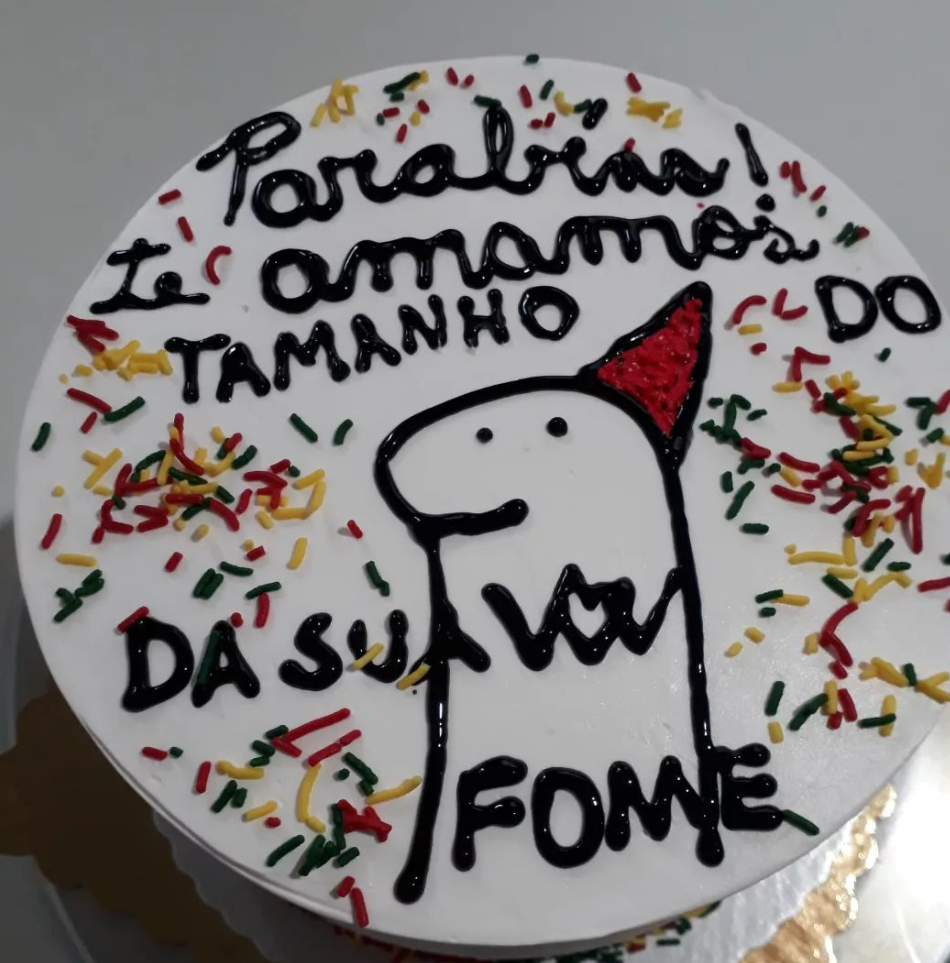 Parabéns!
te amamos
TAMANHO DO
DA SUA
FOME